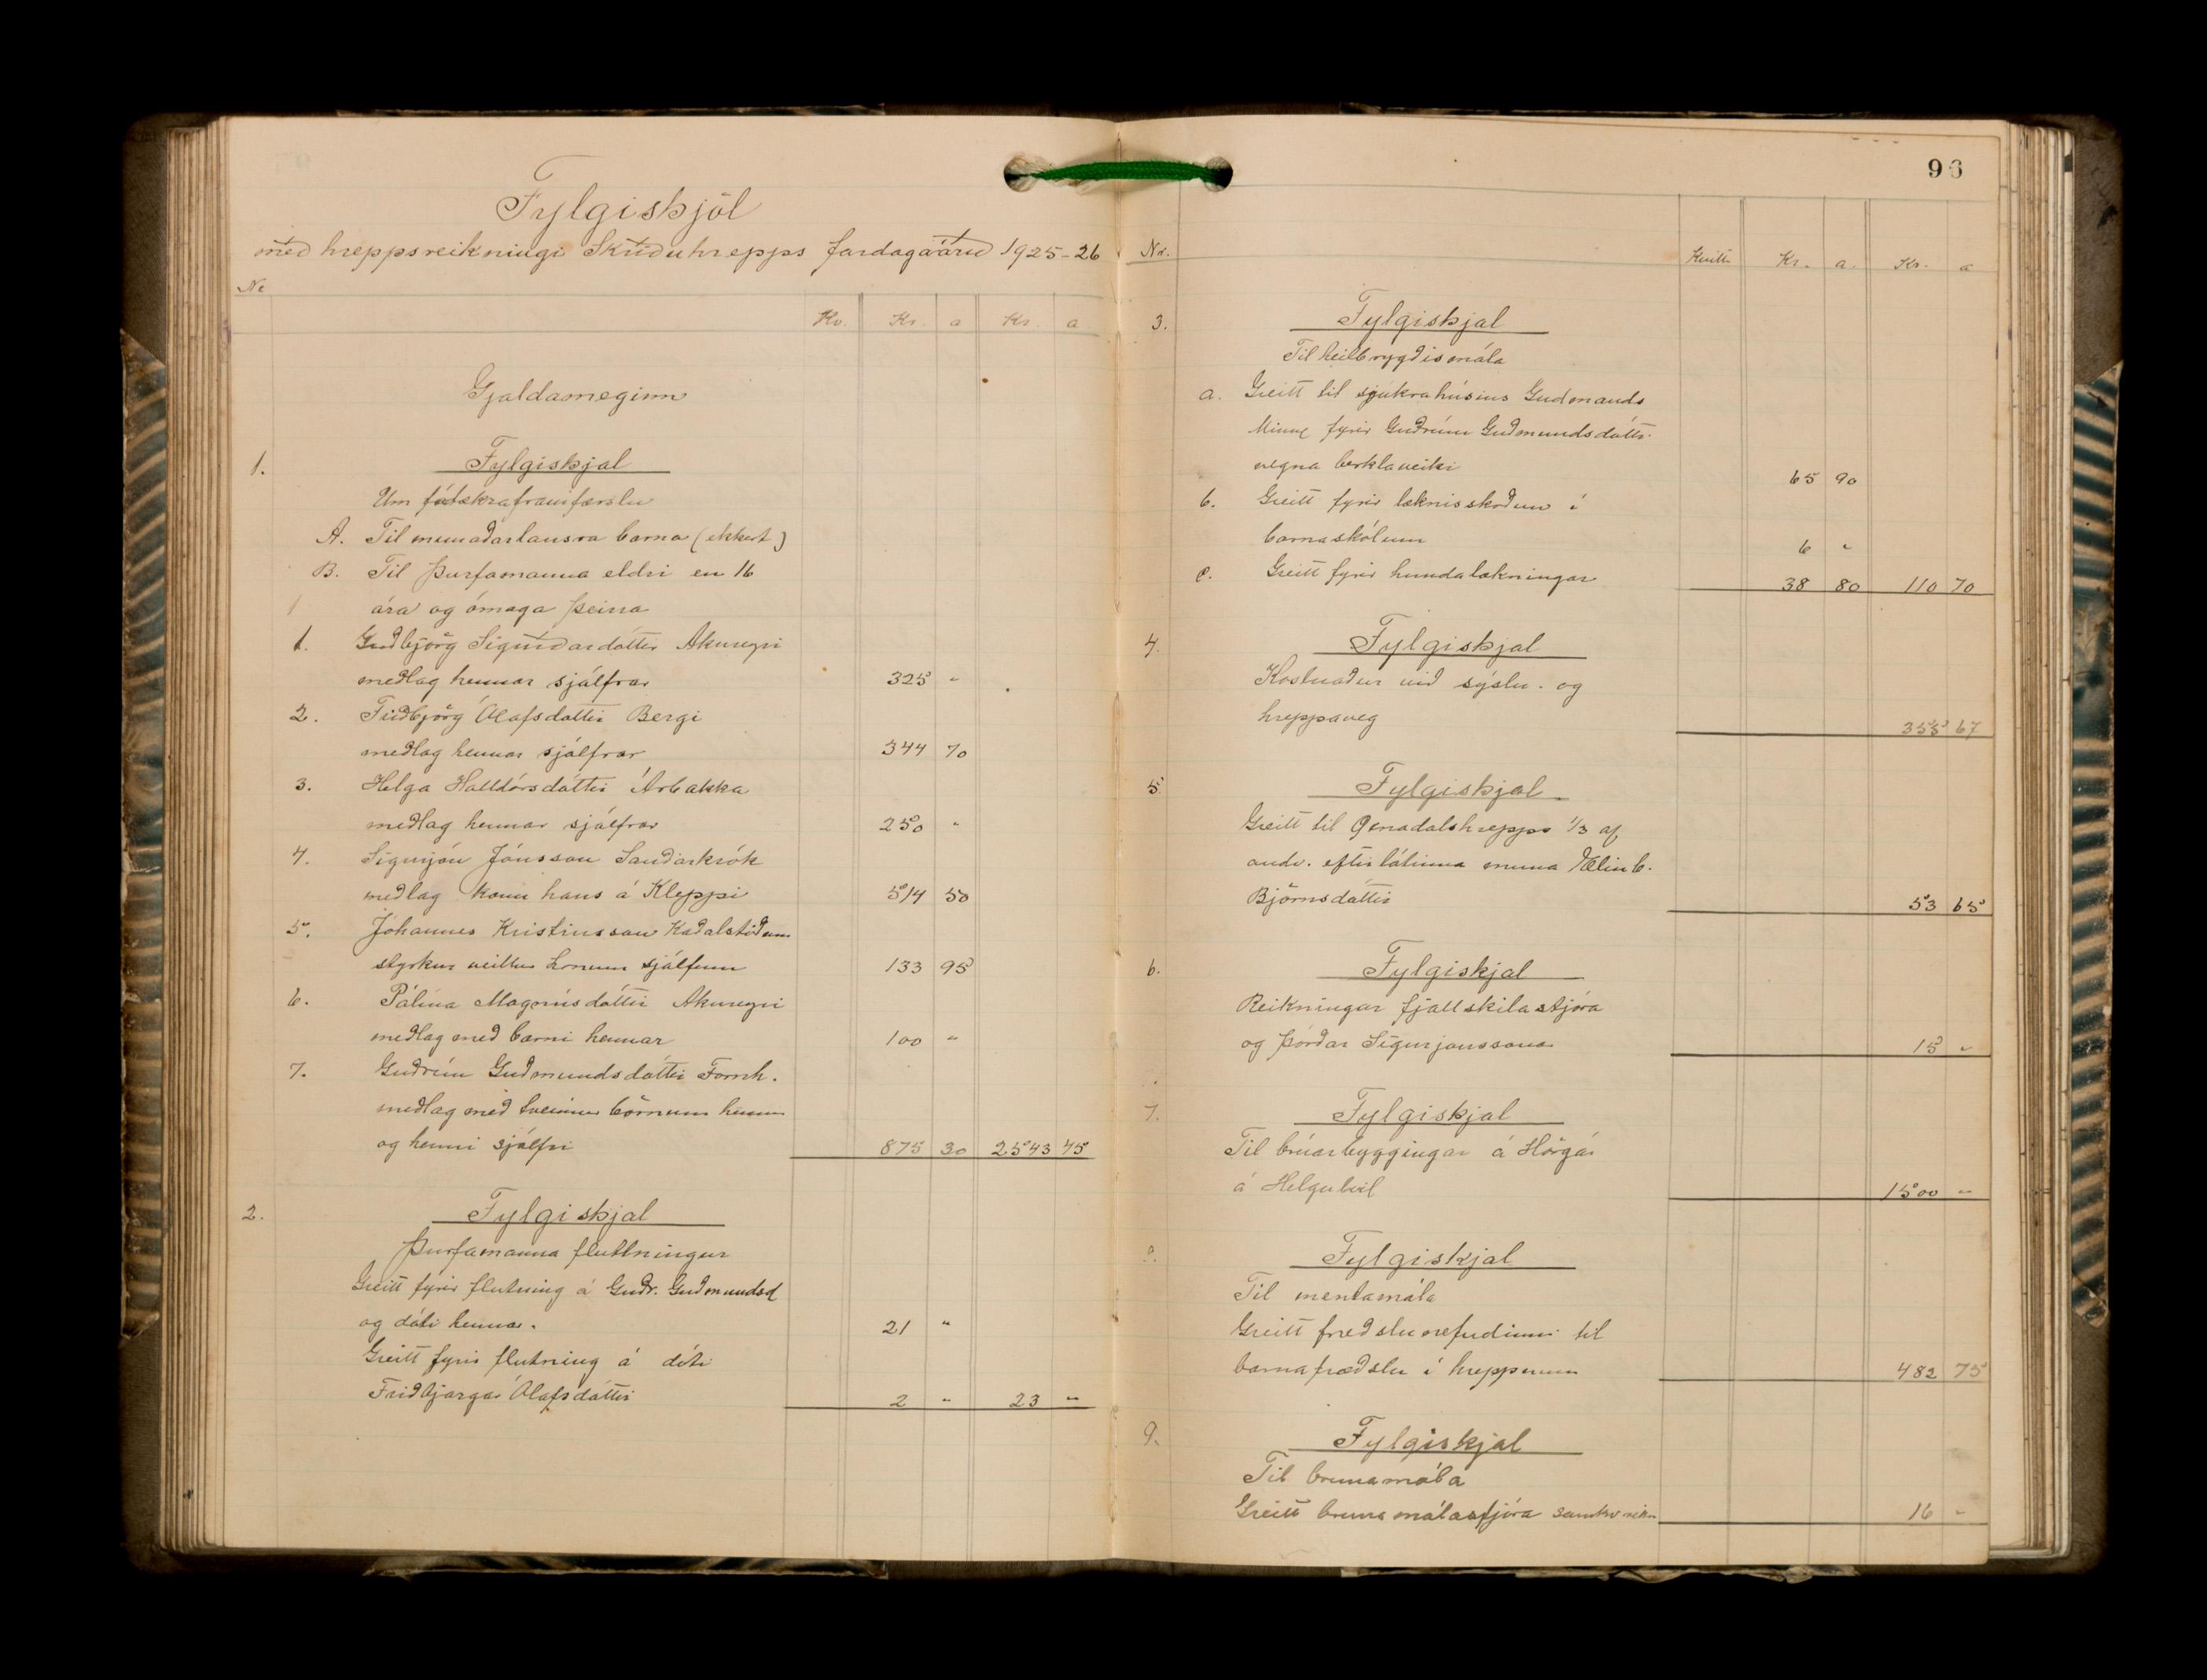 Fylgiskjöl
með hreppsreikningi Skriðuhrepps fardagaárið 1925-26
No
Kv. Kr. a Kr. a
Gjaldameginn
1. Fylgiskjal
Um fátækraframfærslu
A. Til munaðarlausra barna (ekkert)
B. Til þurfamanna eldri en 16
ára og ómaga þeirra
1. Guðbjörg Sigurðardóttir Akureyri
meðlag hennar sjálfrar 325 "
2. Friðbjörg Ólafsdóttir Bergi
meðlag hennar sjálfrar 344 70
3. Helga Halldórsdóttir Árbakka
meðlag hennar sjálfrar 250 "
4. Sigurjón Jónsson Sauðárkrók
meðlag konu hans á Kleppi 514 50
5. Jóhannes Kristinsson Kaðalstöðum
styrkur veittur honum sjálfum 133 95
6. Pálína Magnúsdóttir Akureyri
meðlag með barni hennar 100 "
7. Guðrún Guðmundsdóttir Fornh.
meðlag með tveimur börnum hennar
og henni sjálfri 875 30 2543 45
2. Fylgiskjal
Þurfamanna fluttningur
Greitt fyrir flutning á Guðr. Guðmundsd
og dóti hennar. 21 "
Greitt fyrir flutning á dóti
Friðbjargar Ólafsdóttir 2 " 23 "
96
Nr. Kvitt. Kr. a. Kr. a
3. Fylgiskjal
Til heilbrygðismála
a. Greitt til sjúkrahúsins Gudmands
Minne fyrir Guðrúnu Guðmundsdóttr.
vegna berklaveiki 65 90
b. Greitt fyrir læknisskoðun í
barnaskólum 6 "
c. Greitt fyrir hundalækningar 38 80 110 70
4. Fylgiskjal
Kostnaður við sýslu- og
hreppaveg 355 67
5 Fylgiskjal
Greitt til Öxnadalshrepps 1/3 af
andv. eftirlátinna muna Elinb.
Björnsdóttir 53 65
6. Fylgiskjal
Reikningar fjallskilastjóra
og Þórðar Sigurjónssonar 15 "
7. Fylgiskjal
Til brúarbyggingar á Hörgá
á Helguhyl 1500 "
8. Fylgiskjal
Til mentamála
Greitt fræðslunefndinni til
barnafræðslu í hreppnum 482 75
9. Fylgiskjal
Til brunamála
Greitt brunamálastjóra samkv reikn 16 "